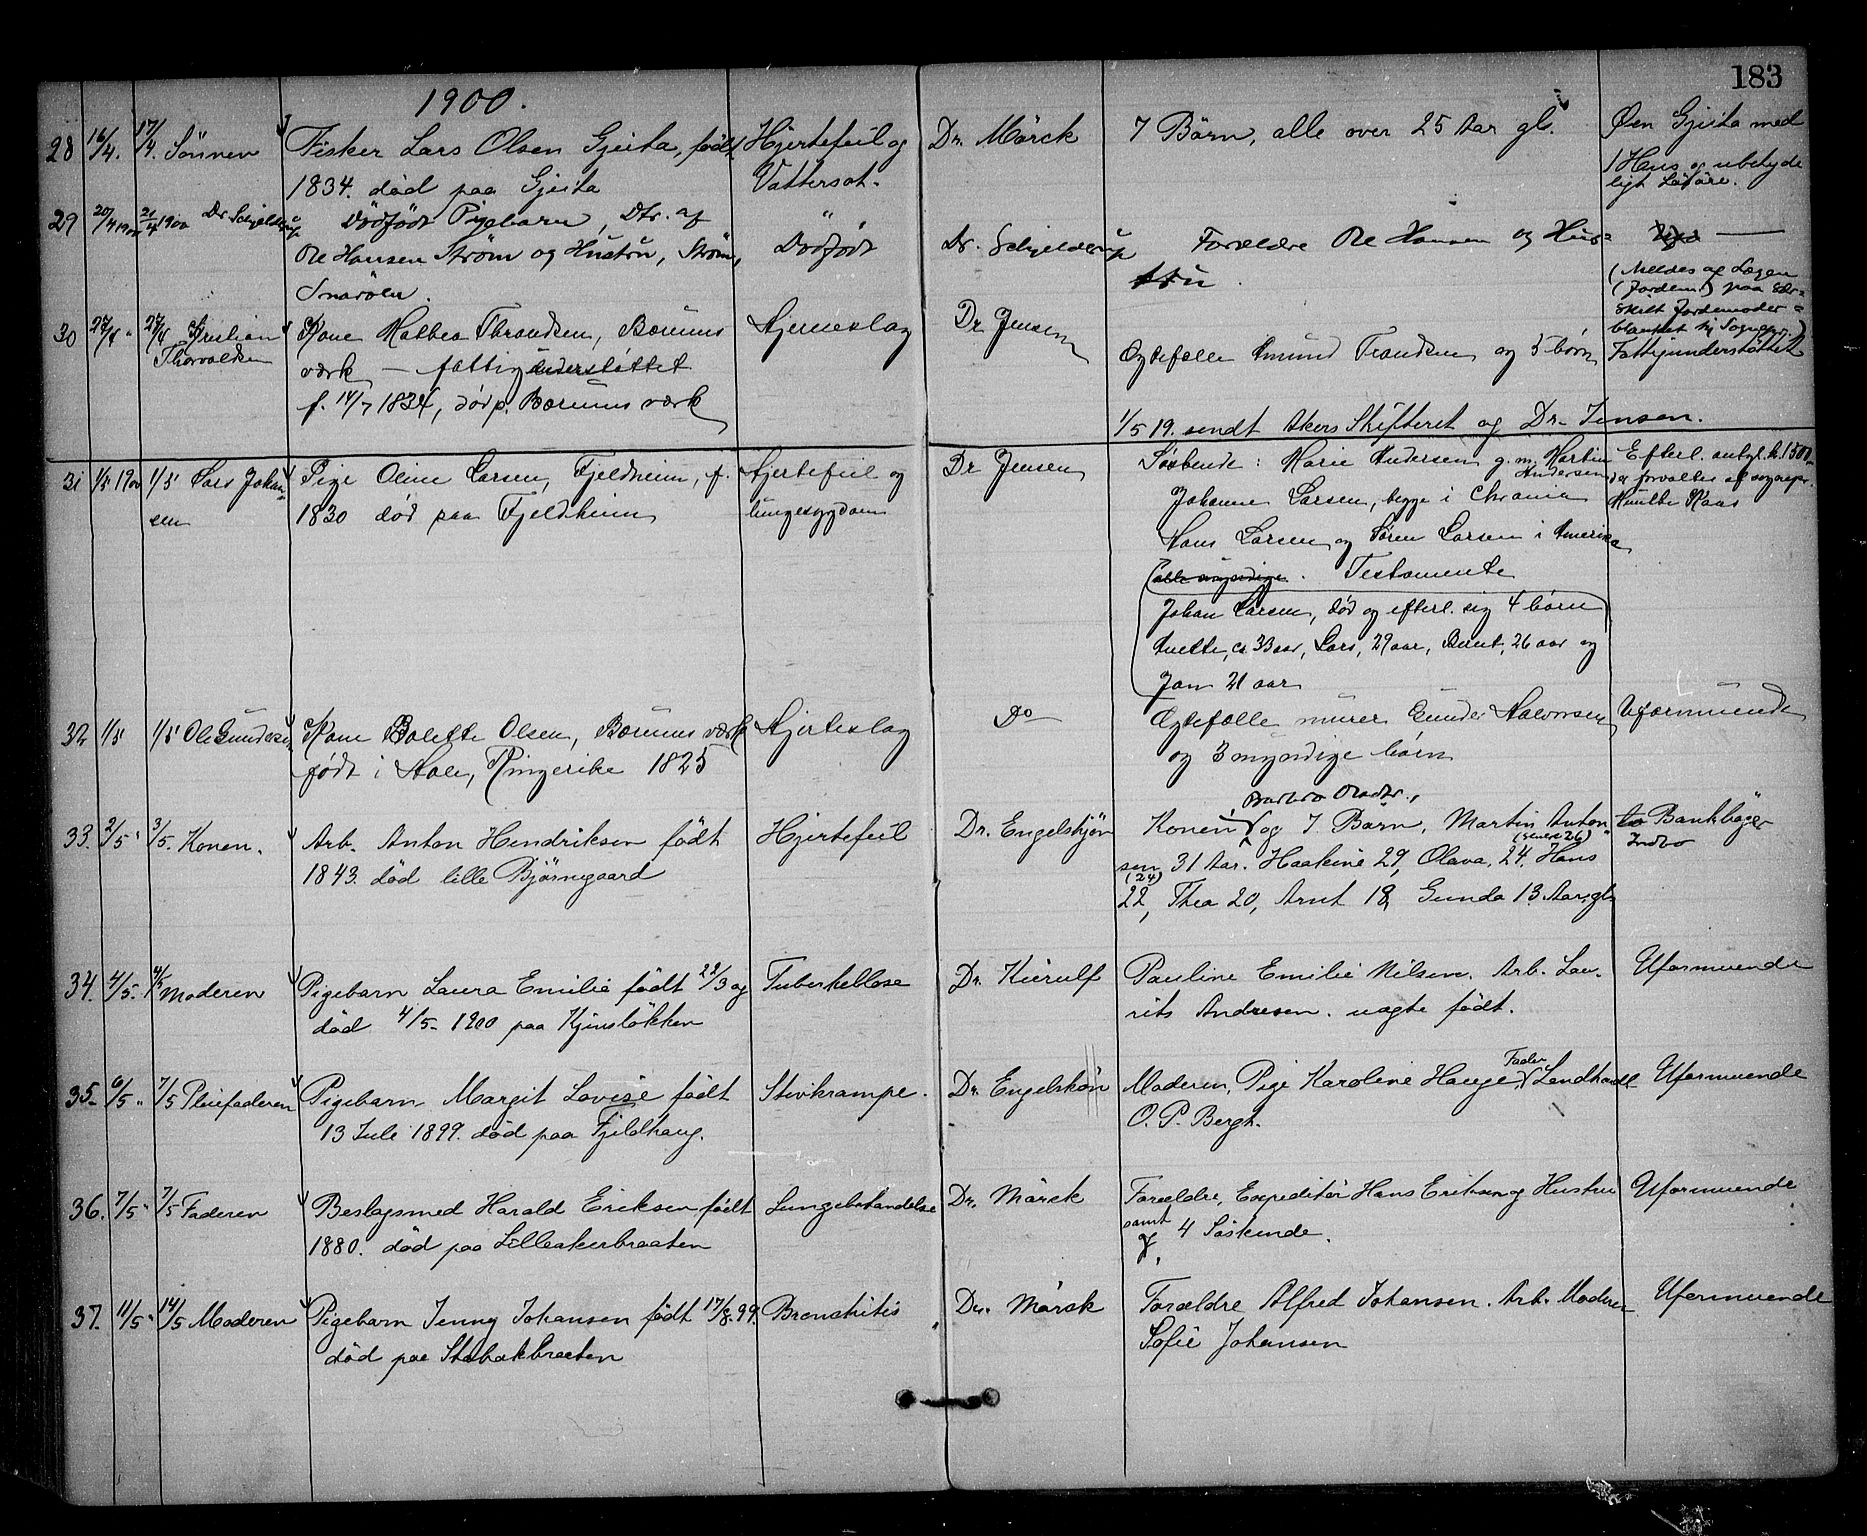 183
1900.
28 16/4. 17/4. Sönnen Fisker Lars Olsen Gjeita, født Hjertefeil og Dr. Mörck 7 Börn, alle over 25 Aar gl. Øen Gjeita med
1834. død paa Gjeita Vattersot. 1 Hus og ubetyde
ligt Løsöre.
29 20/4 1900 21/4 1900 Dr Schjelderup Dødfødt Pigebarn, Dtr. af Dødfødt Dr. Schjelderup Forældre Ole Hansen og Hus=
Ole Hansen Strøm og Hustru, Strøm, tru
Snarøen. (Meldes af Lægen
(Jordem.) paa sær=
skilt Jordemoder=
blanket til Sognepr.)
30 27/4 " 27/4 Kristian Kone Mathea Thrandsen, Bærums Hjerneslag Dr Jensen Ægtefælle Amund Trandsen og 5 børn Fattigunderstøttet
Thorvaldsen værk – fattigunderstøttet
f. 14/7 1834, død p. Bærums værk
1/5 19. sendt Akers Skifteret og Dr. Jensen.
31 1/5 1900 1/5 Lars Johan= Pige Oline Larsen, Fjeldheim, f. Hjertefeil og Dr Jensen Søskende: Marie Andersen g. m. Martin Andersen Efterl. antgl. k. 1500
sen 1830 død paa Fjeldheim lungesygdom Johanne Larsen, begge i Chrania der forvaltes af sogrepr.
Munthe Kaas
Hans Larsen og Søren Larsen i Amerika
(alle myndige. Testamente
Johan Larsen, død og efterl. sig 4 børn
Anette, ca 33 aar, Lars, 29 aar, Bernt, 26 aar og
Jan 21 aar
32 1/5 1/5 Ole Gundersen Kone Bolette Olsen, Bærums værk Hjerteslag Do Ægtefælle murer Gunder Halvorsen Uformuende
født i Hole, Ringerike 1825 og 3 myndige børn
33. 2/5 " 3/5. Konen. Arb. Anton Hendriksen født Hjertefeil Dr. Engelskjøn Konen Barbro Olsdtr., og 7. Barn, Martin Anton Bankbøger
1843. død lille Bjørnegaard sen 31 Aar. Haakine 29, Olava, 24. Hans Indbo
(24)
22, Thea 20, Arnt 18, Gunda 13 Aar gl.
34. 4/5. 4/5 Moderen Pigebarn Laura Emilie født 22/3 og Tuberkellose Dr. Kierulf Pauline Emilie Nilsen. Arb. Lau= Uformuende
død 4/5- 1900 paa Kjinsløkken rits Andresen. uagte født.
35. 6/5 " 7/5 Pleiefaderen Pigebarn Margit Lovise født Stivkrampe. Dr. Engelskön Moderen, Pige Karoline Hauge Fader Landhandl Uformuende
13 Juli 1899. død paa Fjeldhaug. O. P. Bergh.
36. 7/5 " 7/5 Faderen Beslagsmed Harald Eriksen født Lungebetændelse Dr. Mörck Forældre, Expeditör Hans Eriksen og Hustru Uformuende
1880. død paa Lilleakerbraaten samt 4 Søskende.
37. 11/5 " 14/5 Moderen Pigebarn Jenny Johansen født 17/8.99. Bronchitis Dr. Mörck Forældre Alfred Johansen. Arb. Moderen Uformuende
død paa Stabækbraaten Sofie Johansen